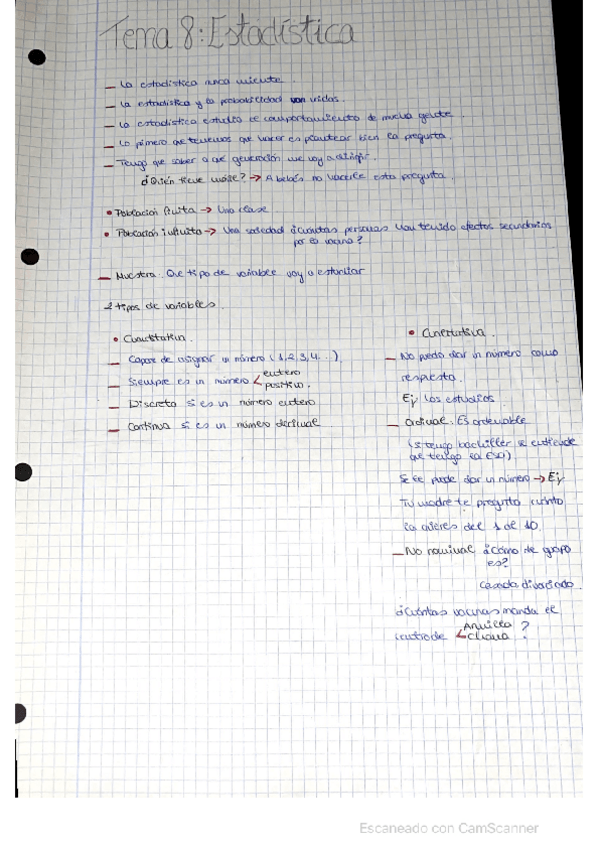 Tema 8: Estadística
— La estadística nunca miente.
— La estadística y la probabilidad van unidas.
— La estadística estudia el comportamiento de mucha gente.
— Lo primero que tenemos que hacer es plantear bien la pregunta.
— Tengo que saber a qué generación me voy a dirigir.
¿Quién tiene móvil? → A bebés no hacerle esta pregunta.
• Población finita → Una clase
• Población infinita → Una sociedad ¿Cuántas personas han tenido efectos secundarios
por la vacuna?
— Muestra: Que tipo de variable voy a estudiar
2 tipos de variables.
• Cuantitativa.
— Capaz de asignar un número (1,2,3,4...)
— Siempre es un número < entero
positivo.
— Discreta si es un número entero
— Continua si es un número decimal
• Cualitativa.
— No puedo dar un número como
respuesta.
Ej los estudios.
— Ordinal: Es ordenable
(si tengo bachiller se entiende
que tengo la ESO)
Se le puede dar un número → Ej
Tu madre te pregunta cuánto
la quieres del 1 al 10.
— No nominal ¿Cómo de guapo
es?
¿Cuántas vacunas manda el
< Anillo ?
China
Escaneado con CamScanner